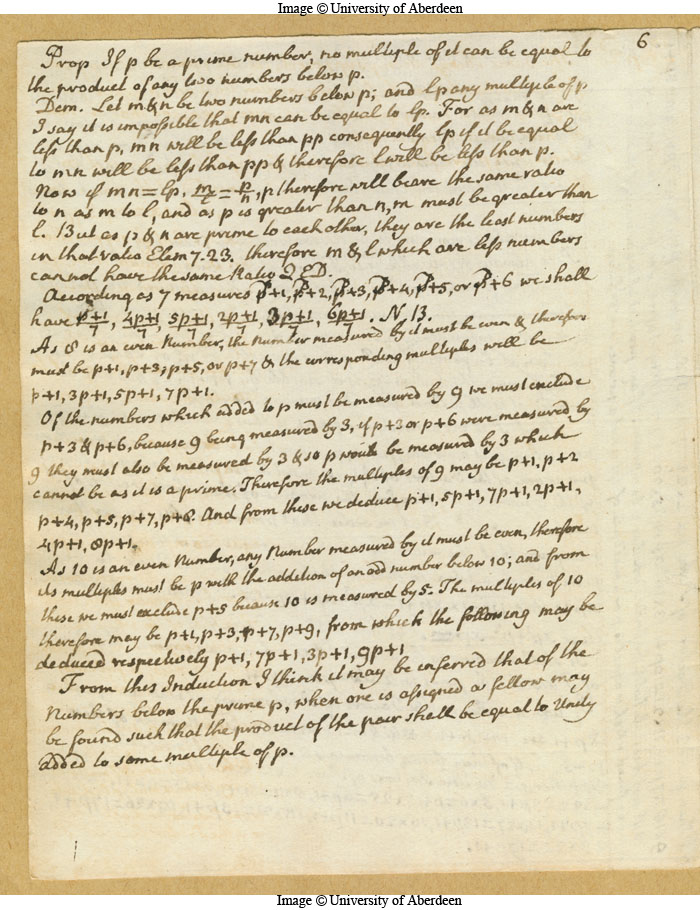 Image © University of Aberdeen
6
Prop If p be a prime number, no multiple of it can be equal to
the product of any two numbers below p.
Dem. Let m & n be two numbers below p; and lp any multiple of p
I say it is impossible that mn can be equal to lp. For as m & n are
less than p, mn will be less than pp consequently lp if it be equal
to mn will be less than pp & therefore l will be less than p.
Now if mn = lp, m/l = p/n, p therefore will beare the same ratio
to n as m to l, and as p is greater than n, m must be greater than
l. But as p & n are prime to each other, they are the least numbers
in that ratio Elem 7.23. therefore m & l which are less numbers
cannot have the same Ratio Q ED.
According as 7 measures p+1, p+2, p+3, p+4, p+5, or p+6 we shall
have p+1/7, 4p+1/7, 5p+1/7, 2p+1/7, 3p+1/7, 6p+1/7. N. 13.
As 8 is an even Number, the Number measured by it must be even & therefore
must be p+1, p+3, p+5, or p+7 & the corresponding multiples will be
p+1, 3p+1, 5p+1, 7p+1.
Of the numbers which added to p must be measured by 9 we must exclude
p+3 & p+6, because 9 being measured by 3, if p+3 or p+6 were measured by
9 they must also be measured by 3 & so p would be measured by 3 which
cannot be as it is a prime. Therefore the multiples of 9 may be p+1, p+2
p+4, p+5, p+7, p+8. And from these we deduce p+1, 5p+1, 7p+1, 2p+1,
4p+1, 8p+1.
As 10 is an even Number, any Number measured by it must be even, therefore
its multiples must be p with the addition of an odd number below 10; and from
these we must exclude p+5 because 10 is measured by 5. The multiples of 10
therefore may be p+1, p+3, p+7, p+9, from which the following may be
deduced respectively p+1, 7p+1, 3p+1, 9p+1
From this Induction I think it may be inferred that of the
Numbers below the prime p, when one is assigned a fellow may
be found such that the product of the pair shall be equal to Unity
added to some multiple of p.
Image © University of Aberdeen